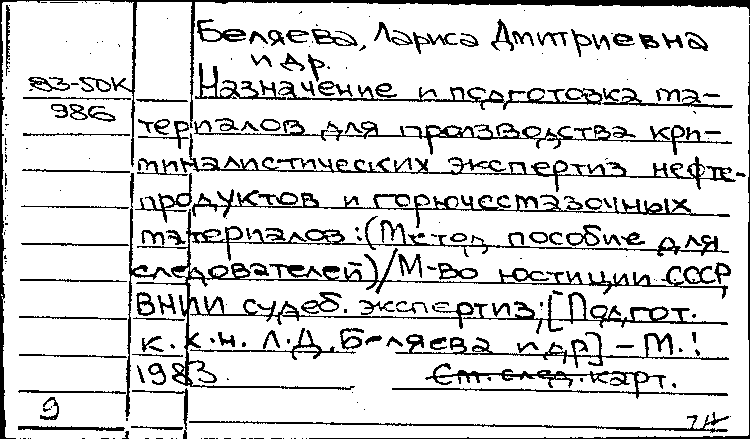 Беляева, Лариса Дмитриевна
и др.
83-50К
Назначение и подготовка ма-
986
териалов для производства кри-
миналистических экспертиз нефте-
продуктов и горючесмазочных
материалов: (Метод. пособие для
следователей)/М-во юстиции СССР,
ВНИИ судеб. экспертиз; [Подгот.
к.х.н. Л.Д. Беляева и др] – М.:
1983
См. след. карт.
9